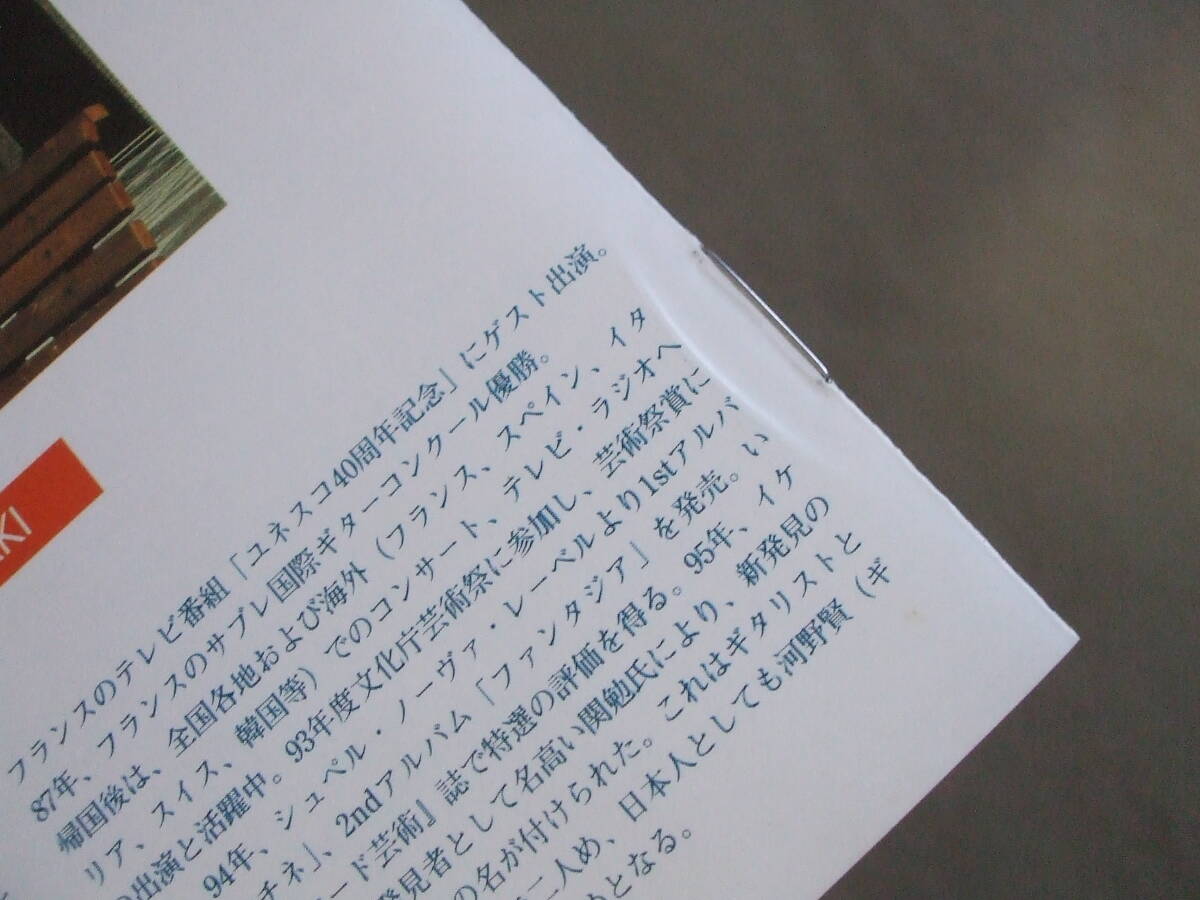 AKI
フランスのテレビ番組「ユネスコ40周年記念」にゲスト出演。
87年、フランスのサブレ国際ギターコンクール優勝。
帰国後は、全国各地および海外（フランス、スペイン、イタ
リア、スイス、韓国等）でのコンサート、テレビ・ラジオへ
の出演と活躍中。93年度文化庁芸術祭に参加し、芸術祭賞に
94年、シュペル・ノーヴァ・レーベルより1stアルバ
チネ」、2ndアルバム「ファンタジア」を発売。い
ード芸術』誌で特選の評価を得る。95年、イケ
発見者として名高い関勉氏により、新発見の
の名が付けられた。これはギタリストと
二人め、日本人としても河野賢（ギ
めとなる。